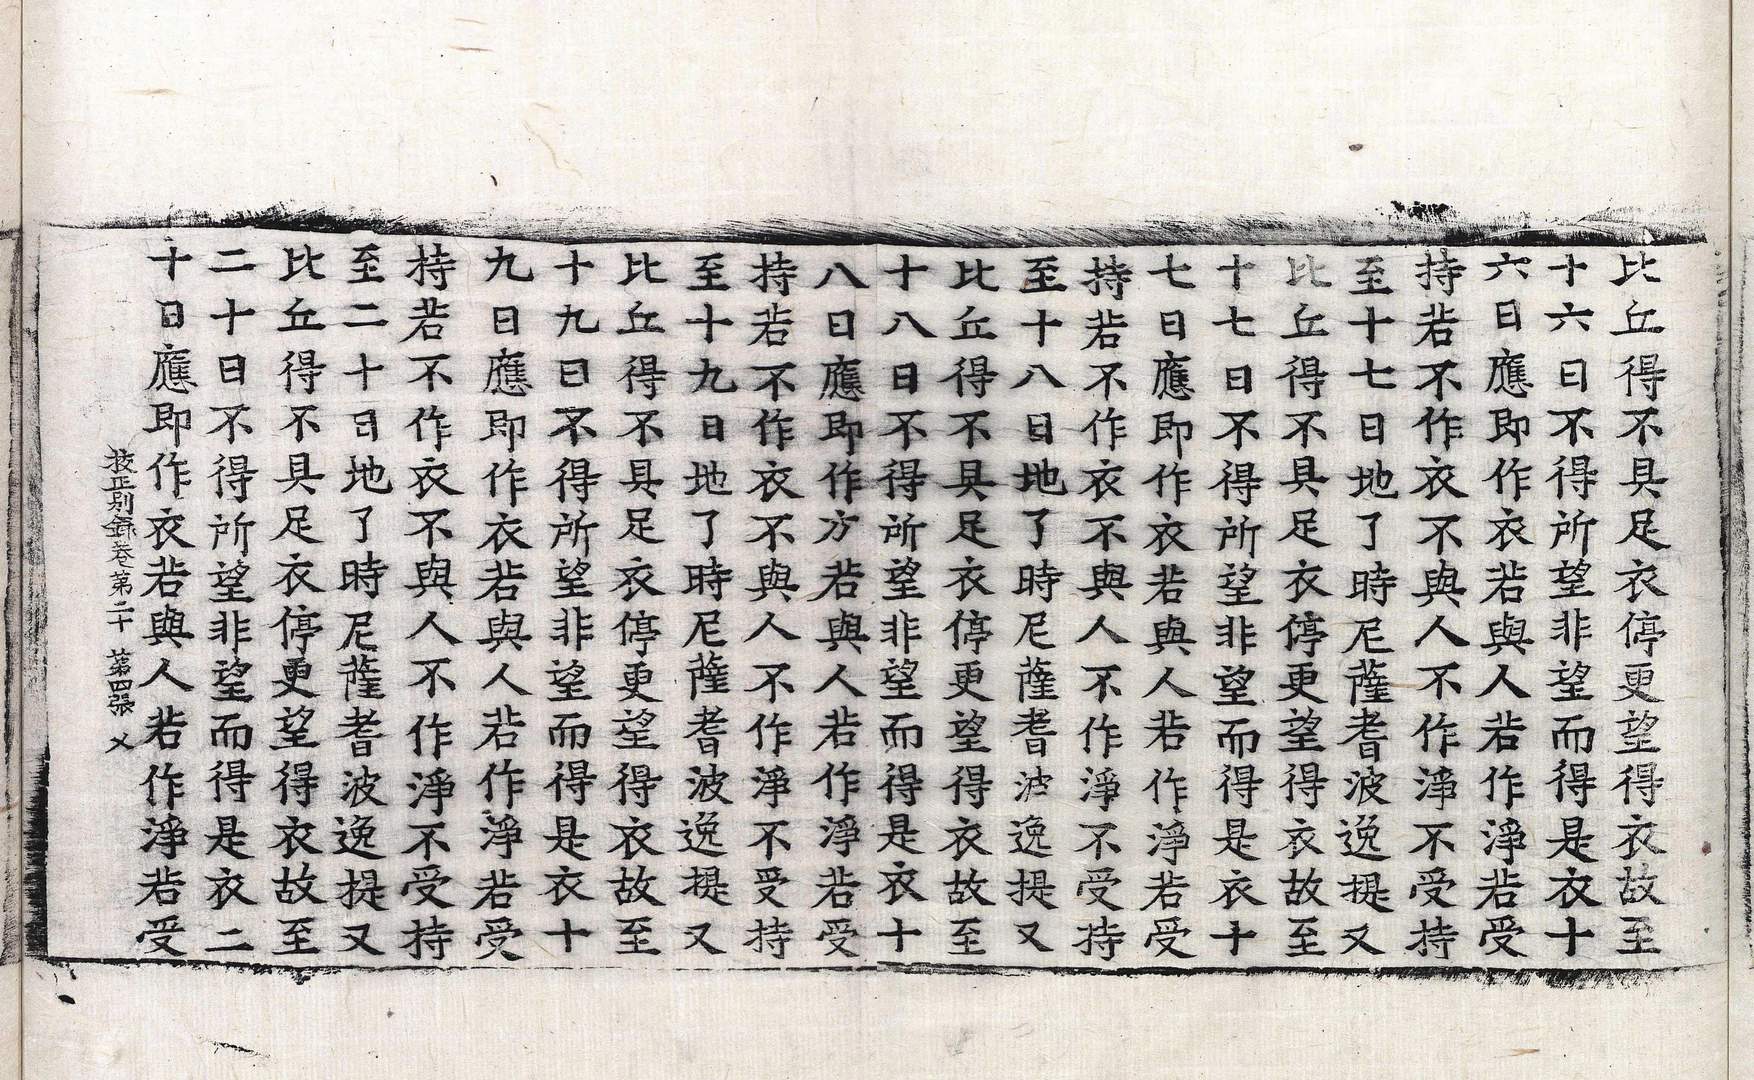 比丘得不具足衣停更望得衣故至
十六日不得所望非望而得是衣十
六日應即作衣若與人若作淨若受
持若不作衣不與人不作淨不受持
至十七日地了時尼薩耆波逸提又
比丘得不具足衣停更望得衣故至
十七日不得所望非望而得是衣十
七日應即作衣若與人若作淨若受
持若不作衣不與人不作淨不受持
至十八日地了時尼薩耆波逸提又
比丘得不具足衣停更望得衣故至
十八日不得所望非望而得是衣十
八日應即作方若與人若作淨若受
持若不作衣不與人不作淨不受持
至十九日地了時尼薩耆波逸提又
比丘得不具足衣停更望得衣故至
十九日不得所望非望而得是衣十
九日應即作衣若與人若作淨若受
持若不作衣不與人不作淨不受持
至二十日地了時尼薩耆波逸提又
比丘得不具足衣停更望得衣故至
二十日不得所望非望而得是衣二
十日應即作衣若與人若作淨若受
校正別録卷第二十 第四張 乂